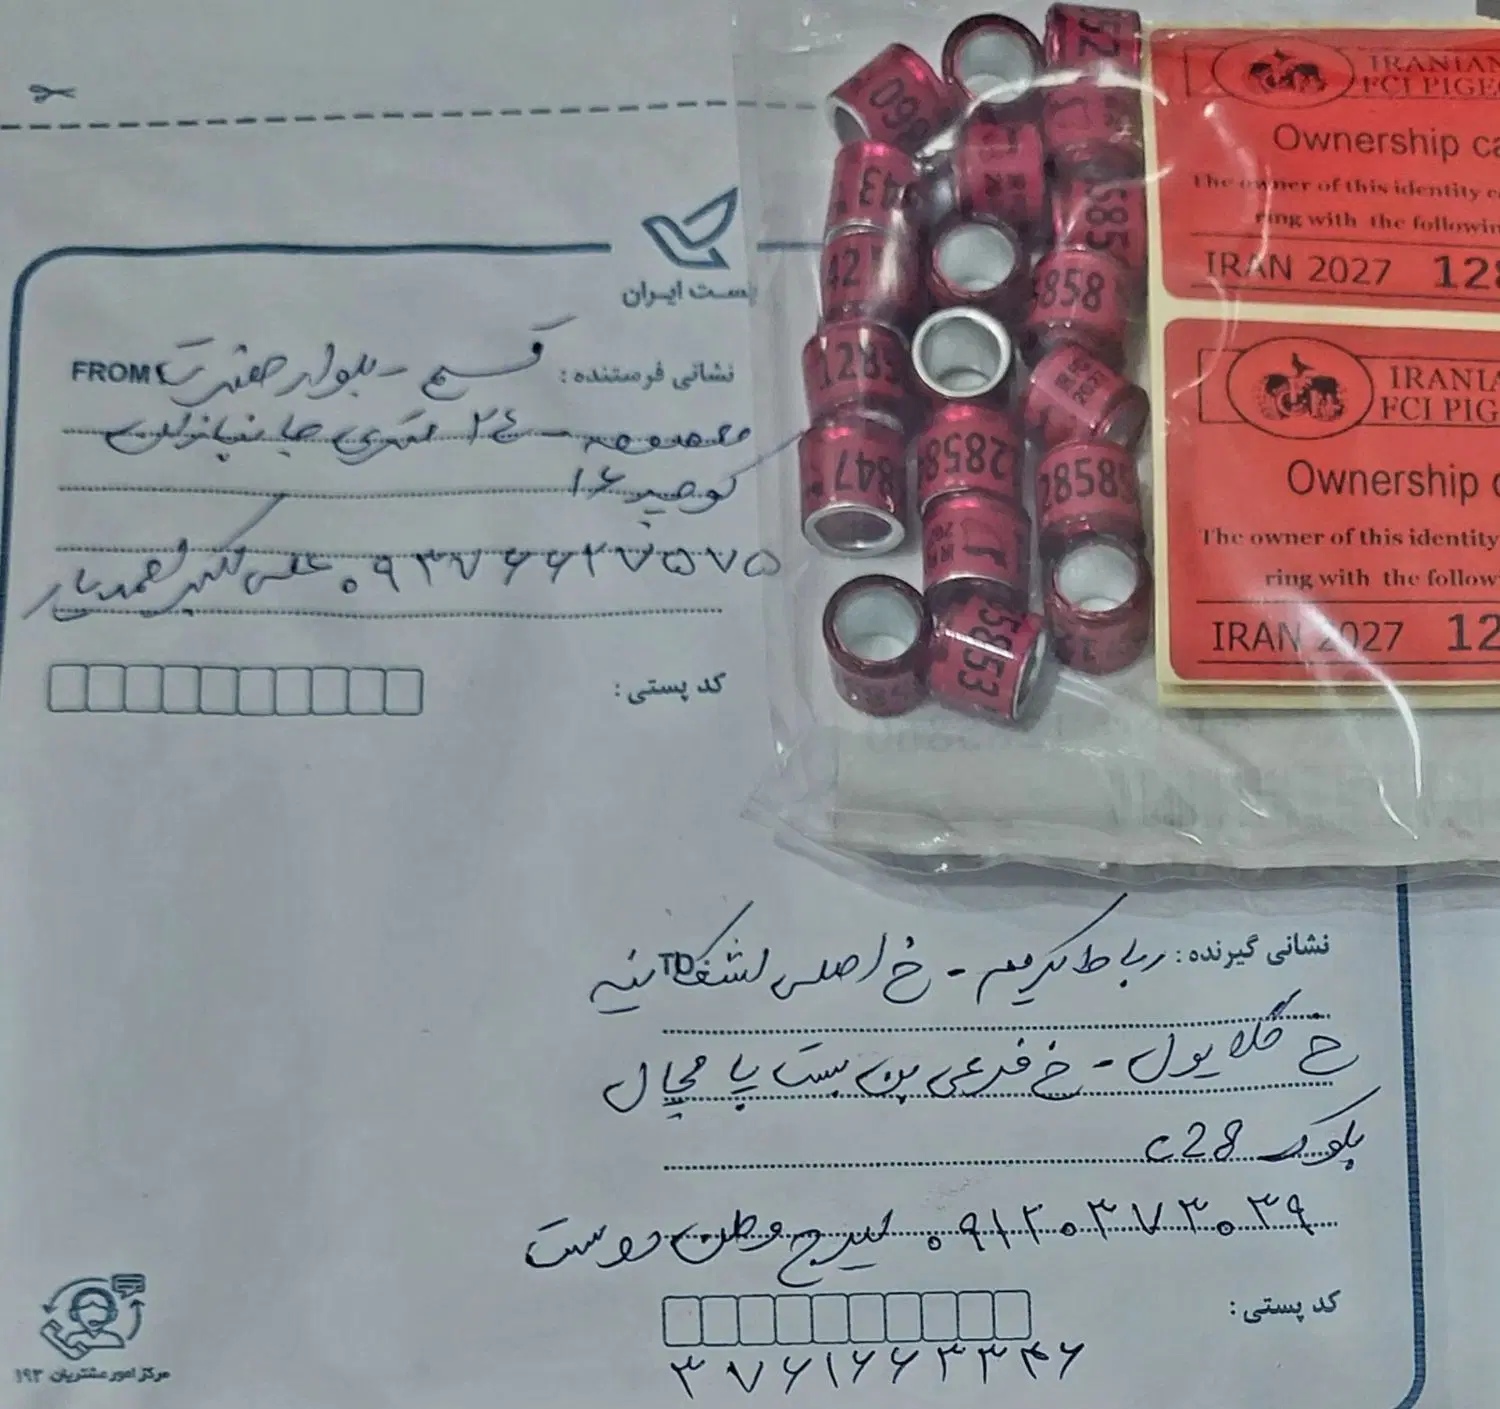 پست ایران
نشانی فرستنده: FROM
بلوار حضرت
معصومه - ۲۴ متری جانبازان
کوچه ۱۶
۰۹۳۷۶۶۲۷۵۷۵ علی اکبر
کد پستی:
099
52
343
42
585
858
1285
847
2858
2858
5853
IRANIAN
FCI PIGE
Ownership ca
The owner of this identity c
ring with the followin
IRAN 2027 128
IRANIA
FCI PIG
Ownership
The owner of this identity
ring with the follow
IRAN 2027 12
نشانی گیرنده: TO رباط کریم - خ اصلی اشکانیه
خ گلایول - خ فرعی بن بست پامچال
بلوک c28
۰۹۱۲۰۳۷۳۰۳۹ ایرج وطن دوست
کد پستی:
۳۷۶۱۶۶۳۳۴۶
مرکز امور مشتریان ۱۹۳